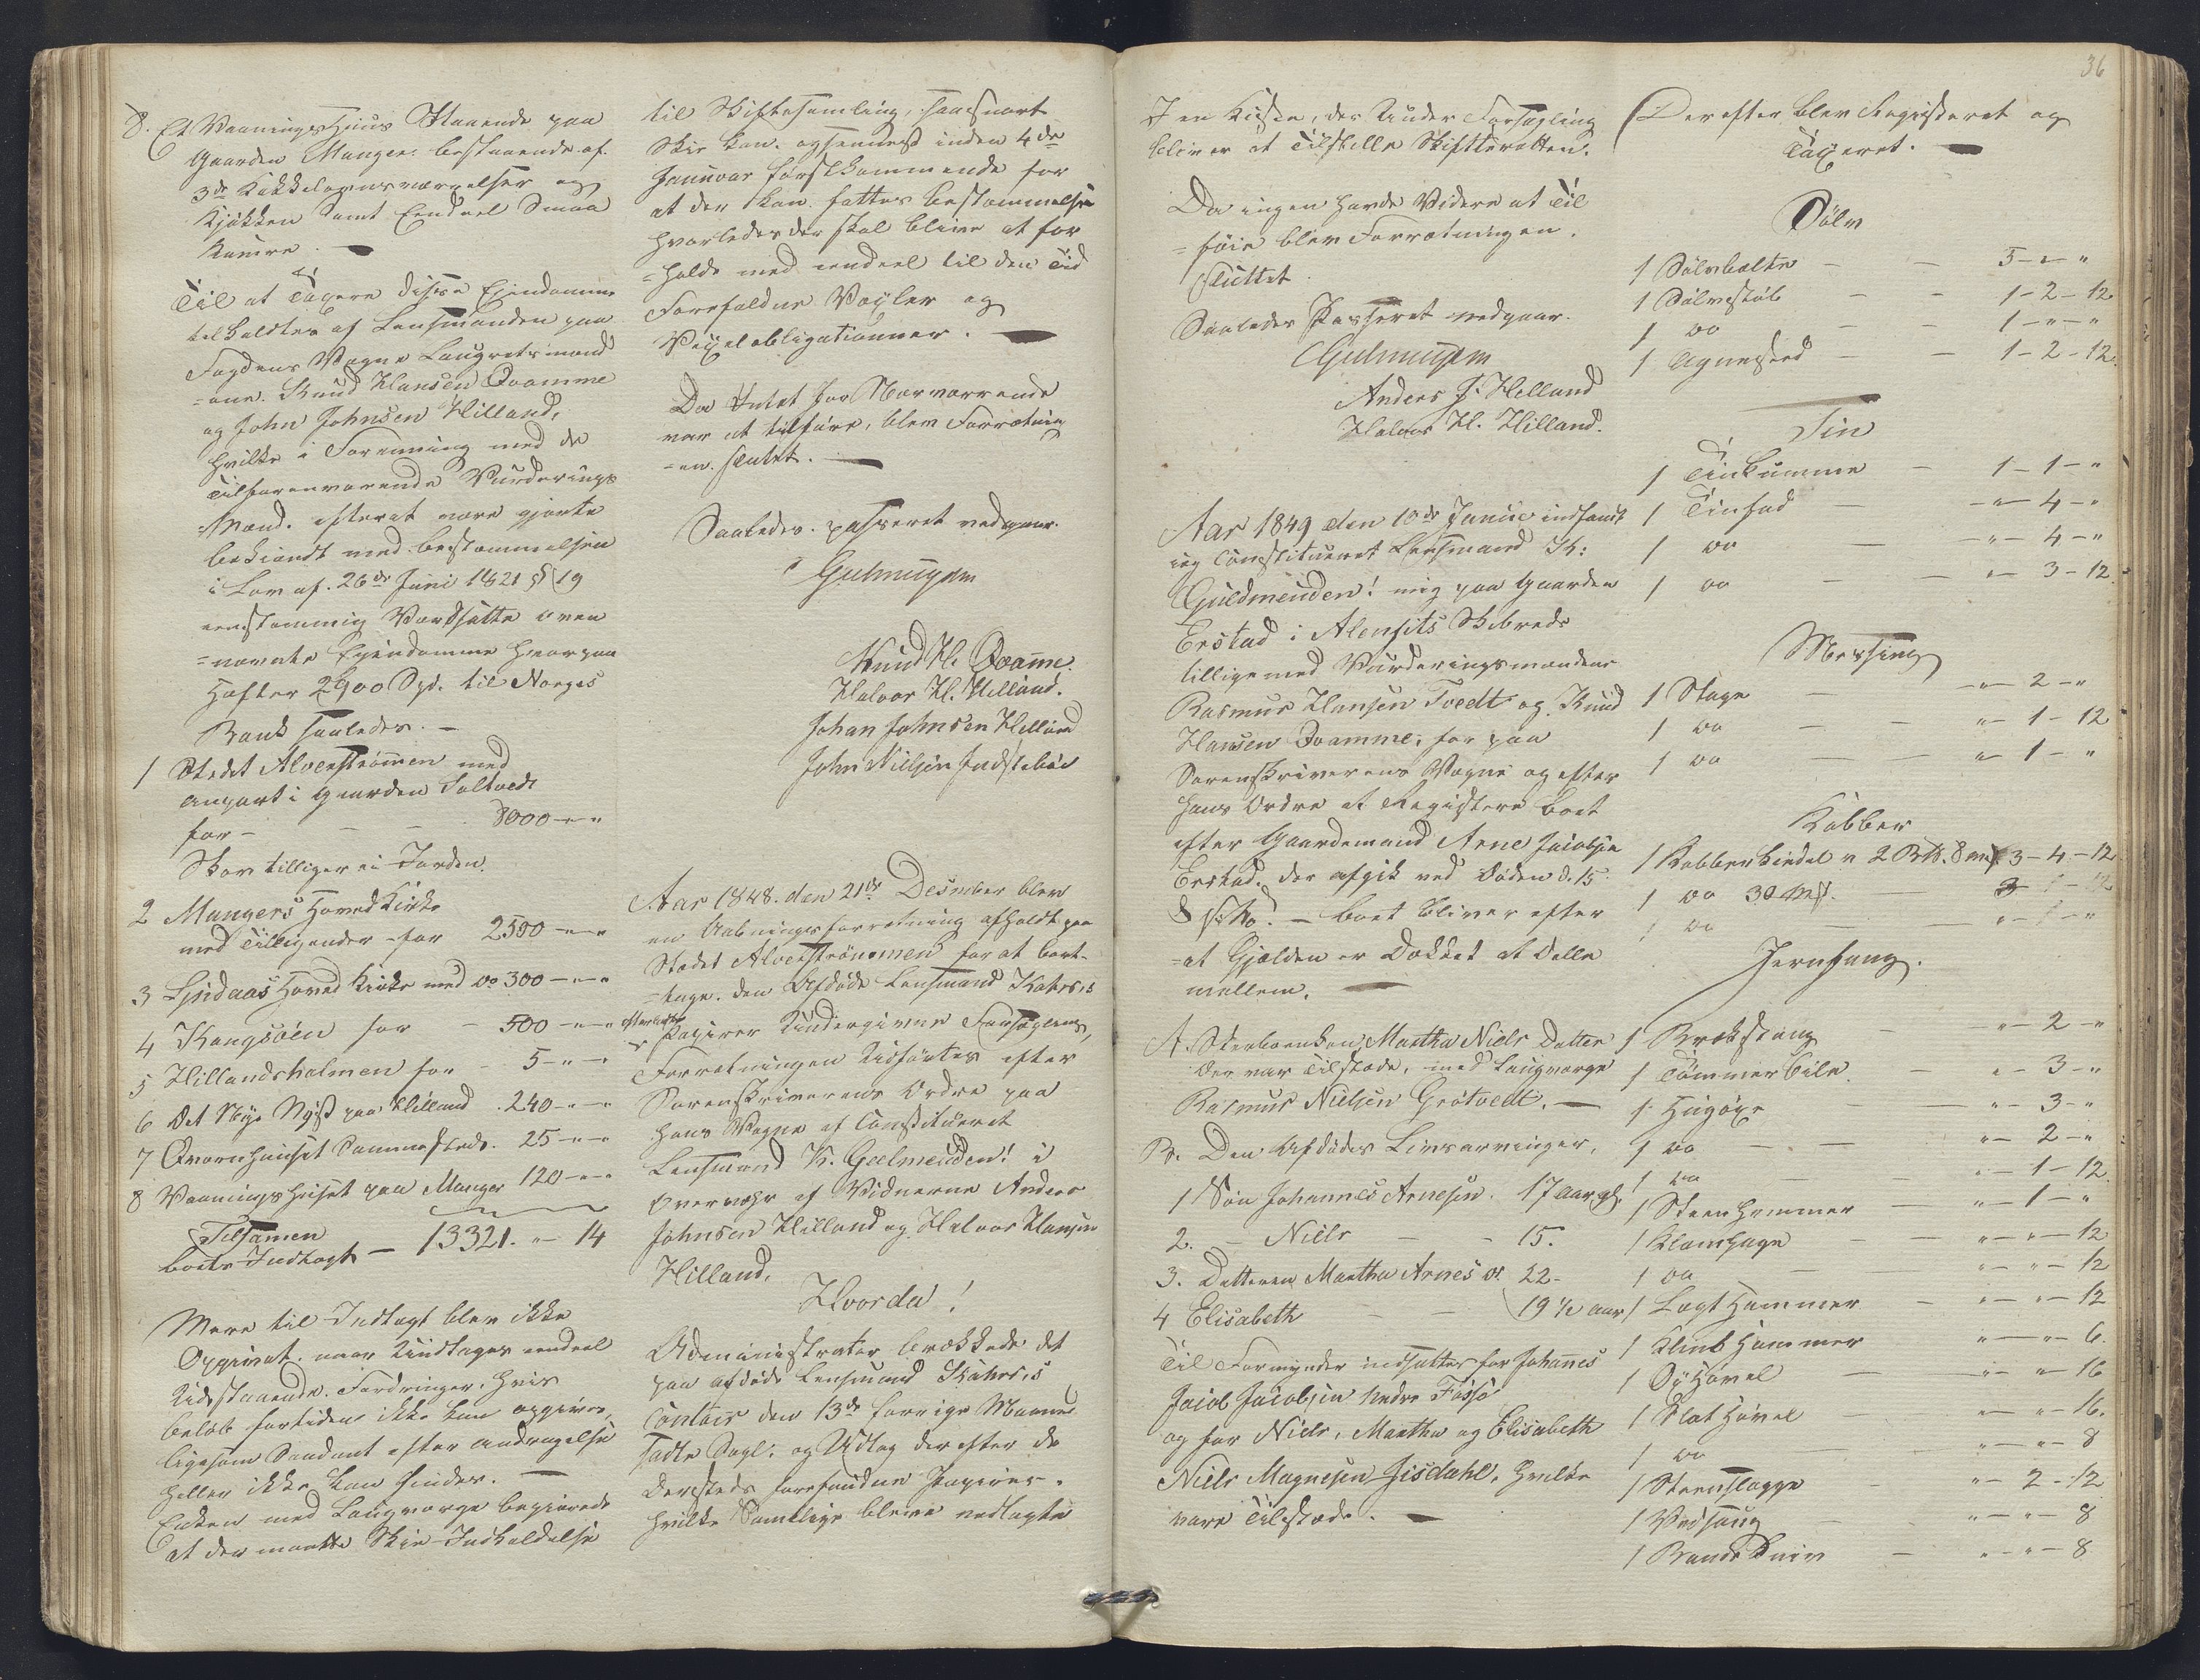 8. Et Vaaningshuus Staaende paa
Gaarden Manger bestaaende af
3de Kakkelovnsværrelser og
Kjøkken samt Eendeel Smaa
Kamre. —
Til at Taxere disse Ejendomme
tilkaldtes af Lensmanden paa
Fogdens Vegne Laugretsmænd
=ene Knud Hansen Qvamme
og John Johnsen Hilland,
hvilke i Forening med de
Tilforenværende Vurderings
Mænd. efterat være gjorte
bekiendt med bestemmelsen
i Lov af 26de Juni 1821 § 19
eenstemmig Værdsatte oven
=nævnte Ejendomme hvorpaa
Hæfter 2900 Spd. til Norges
Bank saaledes. —
1 Stedet Alverstrømmen med
anpart i Gaarden Soltvedt
for — 8000 - " - "
Skov tilliger ei Jorden.
2 Mangers Hoved Kirke
med Tilliggender for 2500 - " - "
3 Lindaas Hoved Kirke med do 300 - " - "
4 Kongsøen for - 500 - " - "
5 Hillandsholmen for - 5 - " - "
6 Det Nye Nøst paa Hilland 240 - " - "
7 Qværnhuuset Sammesteds 25 - " - "
8 Vaaningshuset paa Manger 120 - " - "
Tilsamen
boets Indtægt — 13321. " - 14
Mere til Indtægt blev ikke
Opgivet. naar Undtages eendeel
Udestaaende Fordringer, hvis
beløb fortiden ikke kan opgives,
ligesom Saadant efter andragelse
heller ikke kan sendes. —
Enken med Laugværge begjærede
at der maatte Skee Indkaldelse
til Skiftesamling, saasnart
Skee kan. og senest inden 4de
Januar førstkommende for
at der kan. fattes bestemmelse
hvorledes der skal blive at for
=holde med eendeel til den Tid
Forefaldne Vexler og
Vexelobligationner. —
Da Intet for Nærværende
var at tilføre, blev Forretning
=en sluttet. —
Saaledes. passeret vedgaaer.
Gulmeyden
Knud H. Qvamme.
Halvor H. Hilland.
Johan Johnsen Hilland
John Nilsen Indstebøe
Aar 1848. den 21de Desember blev
en Aabningsforretning afholdt paa
Stedet Alverstrømmen for at bort-
=tage. den Afdøde Lensmand Kahrs,s
efterladte
Papirer Undergivne Forseglings,
Forretningen Udførtes efter
Sorenskriverens Ordre paa
Hans Vegne af Constitueret
Lensmand K. Gulmeyden! i
Overvær af Vidnerne Anders
Johnsen Hilland og Halvor Hansen
Hilland.
Hvorda!
Administrator brækkede det
paa afdøde Lensmand Kahrs,s
Contoir den 13de forrige Maaned
satte Segl: og Udtog derefter de
Dersteds forefundne Papirer.
hvilke Samtlige bleve nedlagte
36
I en Kiste, der Under Forsegling
bliver at Tilstille Skifteretten.
Da ingen havde Videre at Til
=føie blev Forretningen
Sluttet.
Saaledes Passeret vedgaar.
Gulmeyden
Anders J. Hilland
Halvor H. Hilland.
Aar 1849 den 10de Januar indfandt
jeg Constitueret Lensmand K:
Guldmeuden! mig paa Gaarden
Erstad i Alensits Skibrede
tilligemed Vurderingsmændene
Rasmus Hansen Tvedt og Knud
Hansen Qvamme, for paa
Sorenskriverens Vegne og efter
hans Ordre at Registere boet
efter Gaardemand Arne Jacobsen
Erstad. der afgik ved Døden d. 15
— boet bliver efter
=at Gjælden er Dækket at Delle
mellem. —
A. Sterboenken Martha Niels Datter
der var Tilstæde, med Laugværge
Rasmus Nielsen Grøtvedt. —
B. Den Afdødes Livsarvinger,
1 Søn Johannes Arnesen. 17 aar gl.
2. - Niels - - 15.
3. Datteren Martha Arnes dr 22-
4 Elisabeth - - 19 1/2 aar
Til Formynder indsattes for Johannes
Jacob Jacobsen Nedre Fosse
og for Niels, Martha og Elisabeth
Niels Magnesen Isdahl, hvilke
vare Tilstæde. —
Derefter blev Registeret og
Taxeret. —
Sølv
1 Sølvbælte — 5 - " - "
1 Sølvestøb — 1 - 2 - 12
1 do — 1 - " - "
1 Agnested — 1 - 2 - 12
Tin
1 Tinkumme — 1 - 1 - "
1 Tinfad — " - 4 - "
1 do — " - 4 - "
1 do — " - 3 - 12
Messing
1 Stage — " - 2 - "
1 do — " - 1 - 12
1 do — " - 1 - "
Kobber
1 Kobberkiedel v 2 B℔. 8 mrk 3 - 4 - 12
1 do 30 Mrk.
1 do — " - 1 - "
Jernfang.
1 Brækstang — " - 2 - "
1 Tømmerbile — " - 3 - "
1 Hugøxe — " - 3 - "
1 do — " - 2 - "
1 do — " - 1 - 12
1 Steen Hammer — " - 1 - "
1 Klamhage — " - " - 12
1 do — " - " - 12
1 Lægt Hammer — " - " - 12
1 Klinkhammer " - " - 6.
1 Øxhøvel — " - " 16
1 Slet Høvel — " - " - 16.
1 do — " - " - 8
1 Steenslægge — " - 2 - 12
1 Vedsaug — " - " - 8
1 Baandkniv — " - " - 8